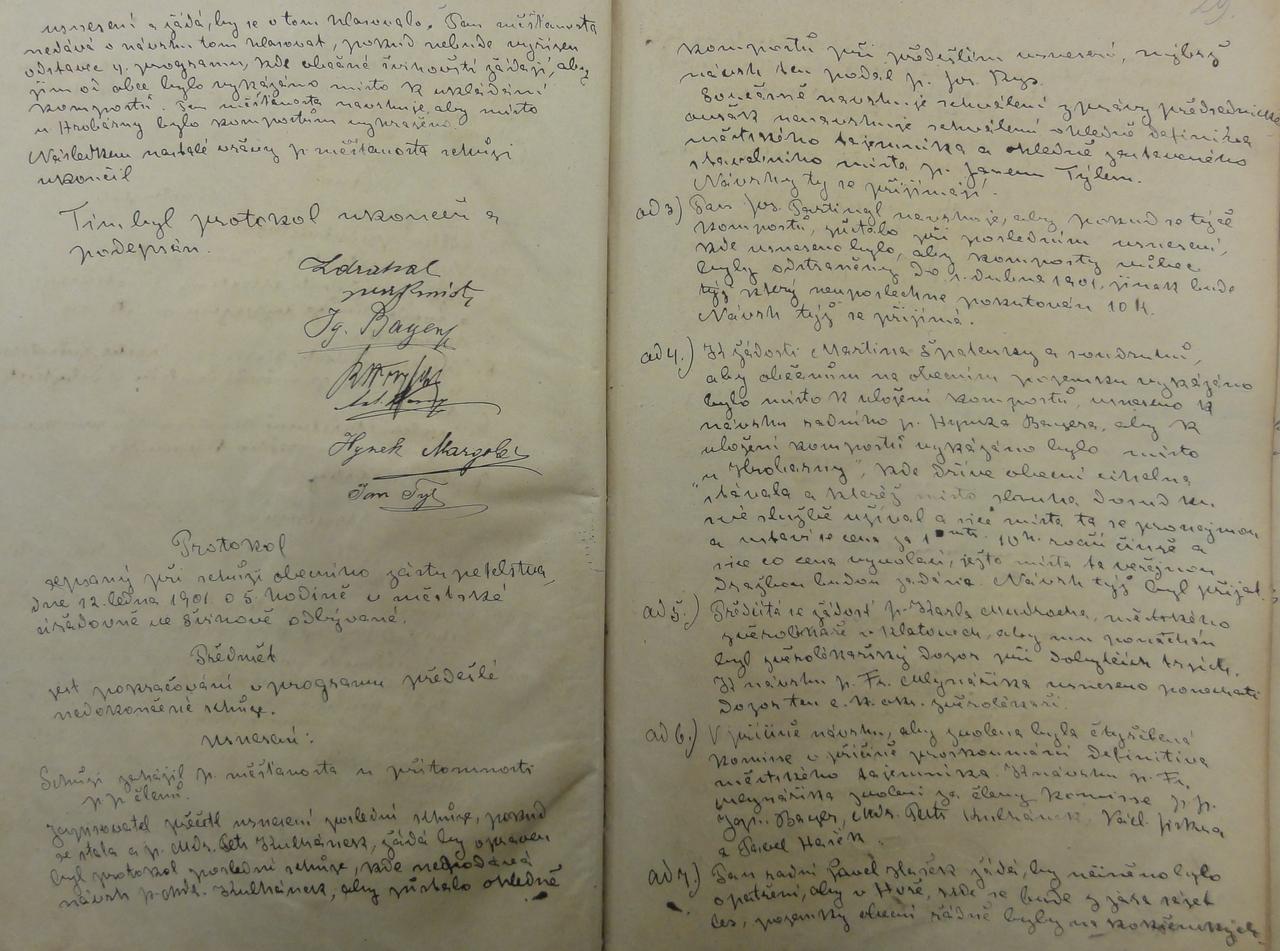 usnesení a žádá, by se o tom hlasovalo. Pan měšťanosta
nedává o návrhu tom hlasovat, pokud nebude vyřízen
odstavec 4. programu, kde občané živnosti žádají, aby
jim od obce bylo vykázáno místo k ukládání
kompostů. Pan měšťanosta navrhuje, aby místo
u Hrobárny bylo kompostům vykázáno.
Následkem nastalé vřavy p. měšťanosta schůzi
ukončil
Tím byl protokol ukončen a
podepsán.
Zdrahal
purkmistr
Ig. Bayer
Hynek Margol
Jan Tyl
Protokol
sepsaný při schůzi obecního zastupitelstva,
dne 12. ledna 1901 o 5. hodině v městské
úřadovně ve odbývané.
Předmět
jest pokračování v programu předešlé
nedokončené schůze.
usnesení:
Schůzi zahájil p. měšťanosta u přítomnosti
p.p. členů.
Zapisovatel přečetl usnesení poslední schůze, pokud
se stala a p. Mdr. Petr Kulhánek, žádá by opraven
byl protokol poslední schůze, kde nepodává
návrh p. Mdr. Kulhánek, aby zůstalo ohledně
29.
kompostů při předešlém usnesení, nýbrž
návrh ten podal p. Jos. Rys.
Současně navrhuje schválení zprávy předsednické
avšak nenavrhuje schválení ohledně definitiva
městského tajemníka a ohledně zastaveného
stavebního místa p. Janem Tylem.
Návrhy ty se přijímají.
ad 3.) Pan Jos. navrhuje, aby pokud se týče
kompostů, zůstalo při posledním usnesení,
kde usneseno bylo, aby komposty vůbec
byly odstraněny do 1. dubna 1901, jinak bude
týž který neuposlechne pokutován 10 K.
Návrh týž se přijímá.
ad 4.) K žádosti Martina Špalenky a soudruhů,
aby občanům na obecním pozemku vykázáno
bylo místo k uložení kompostů, usneseno k
návrhu radního p. Hynka Bayera, aby k
uložení kompostů vykázáno bylo místo
„u Hrobárny", kde dříve obecní cihelna
stávala a kteréž místo sluha dosud ku
své službě užíval a sice místa ta se pronajmou
a ustaví se cena za 1 10 K. roční činže a
sice co cena vyvolací, ježto místa ta veřejnou
dražbou budou zadána. Návrh týž byl přijat.
ad 5.) Předčítá se žádost p. Karla Mudrocha, městského
zvěrolékaře v Klatovech, aby mu ponechán
byl zvěrolékařský dozor při dobytčích trzích.
K návrhu p. Fr. Mlynaříka usneseno ponechati
dozor ten c. k. okr. zvěrolékaři.
ad 6.) V příčině návrhu, aby zvolena byla čtyřčlená
komise v příčině proskoumání definitiva
městského tajemníka. K návrhu p. Fr.
Mlynaříka zvoleni za členy komisse p. p.
Bayer, Mdr. Petr Kulhánek, Václ. Jiskra
a Pavel Hašek.
ad 7.) Pan radní Pavel Hašek žádá, by učiněno bylo
opatření, aby v Huře, kde se bude z jara sázet
les, pozemky obecní řádně byly